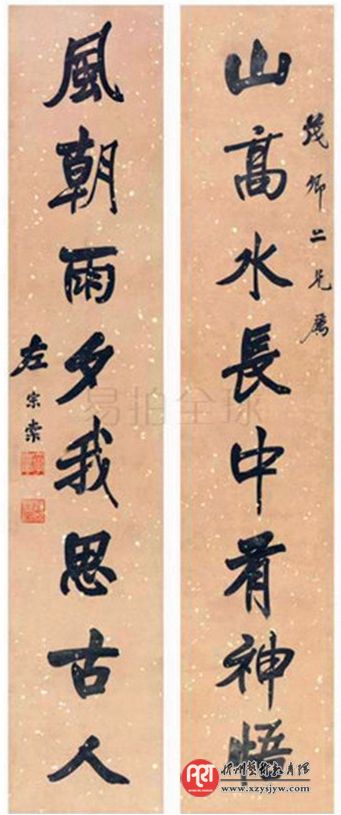 茂卿二兄屬
山髙水長中有神悟
風朝雨夕我思古人
左宗棠
易拍全球
PRT
www.xzysjyw.com